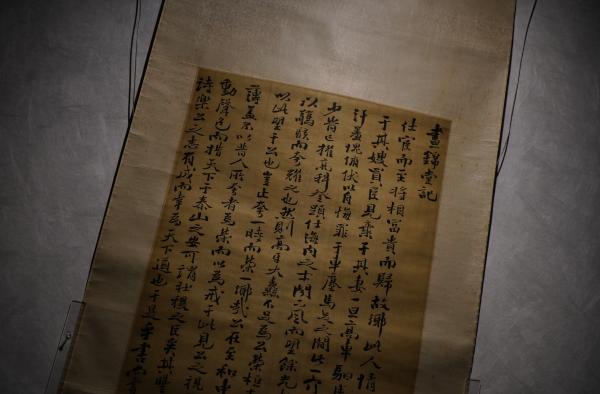 晝錦堂記
仕宦而至將相富貴而歸故鄉此人情
于其嫂買臣見棄于其妻一旦高車駟
汗羞愧俯伏以自悔罪于車塵馬足之間此一介
少皆已擢高科登顯仕海内之士聞下風而望餘光
以驕駭而夸耀之也然則高牙大纛不足為公榮桓
以此望于公也豈止夸一時而榮一鄉哉公在至和中
薄蓋不以昔人所夸者為榮而以為戒于此見公之視
動聲色而措天下于泰山之安可謂社稷之臣矣其豐
詩樂公之志有成而喜為天下道也于是乎書尚書